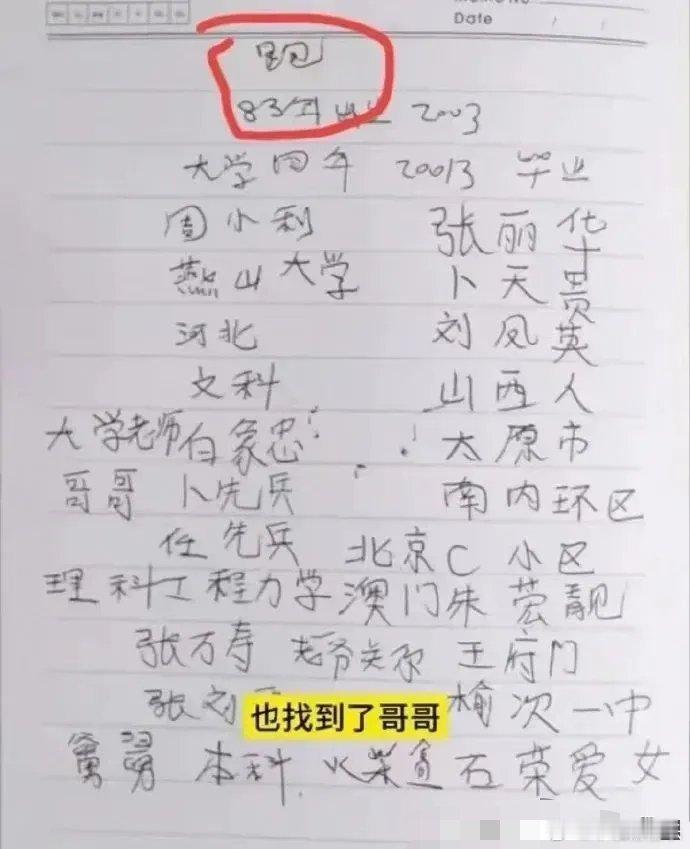 Date / /
83年出生 2003
大学四年 20013 毕业
周小利 张丽华
燕山大学 卜天贵
河北 刘凤英
文科 山西人
大学老师白象忠! ! 太原市
哥哥 卜先兵 南内环区
任先兵 北京C 小区
理科工程力学 澳门朱 靓
张万寿 关系 王府门
张刘 榆次一中
也找到了哥哥
本科 火柴 石荣爱女